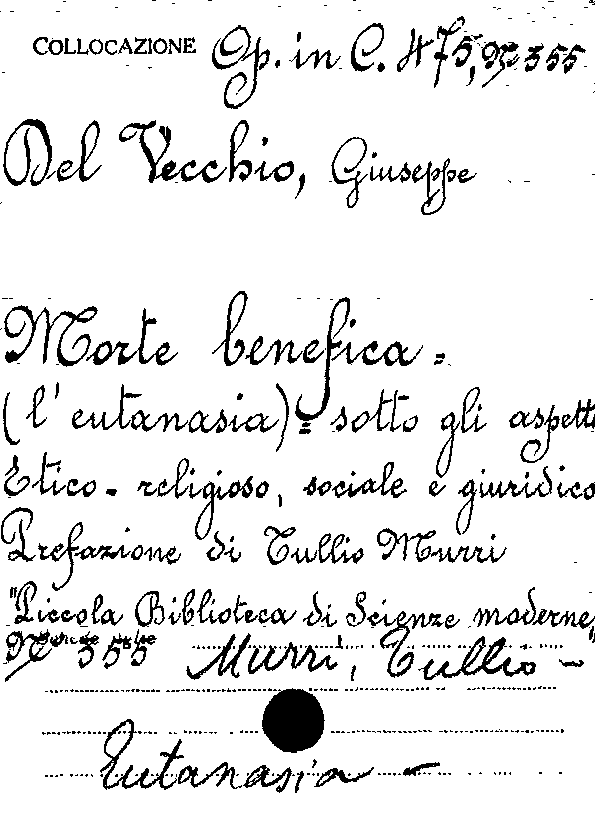 COLLOCAZIONE Op. in C. 475, N° 355
Del Vecchio, Giuseppe
Morte benefica =
(l'eutanasia) = sotto gli aspetti
Etico - religioso, sociale e giuridico
Prefazione di Tullio Murri
"Piccola Biblioteca di Scienze moderne,,
N° 355 Murri, Tullio -
Eutanasia -